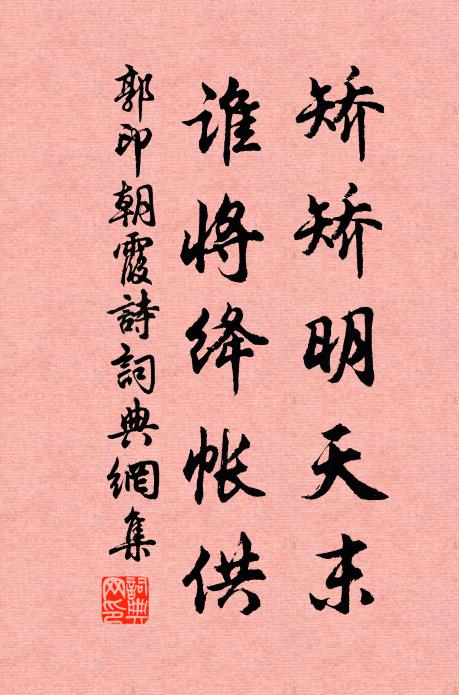 矫矫明天末
谁将绛帐供
郭印朝霞詩詞典網集
詞典
网印